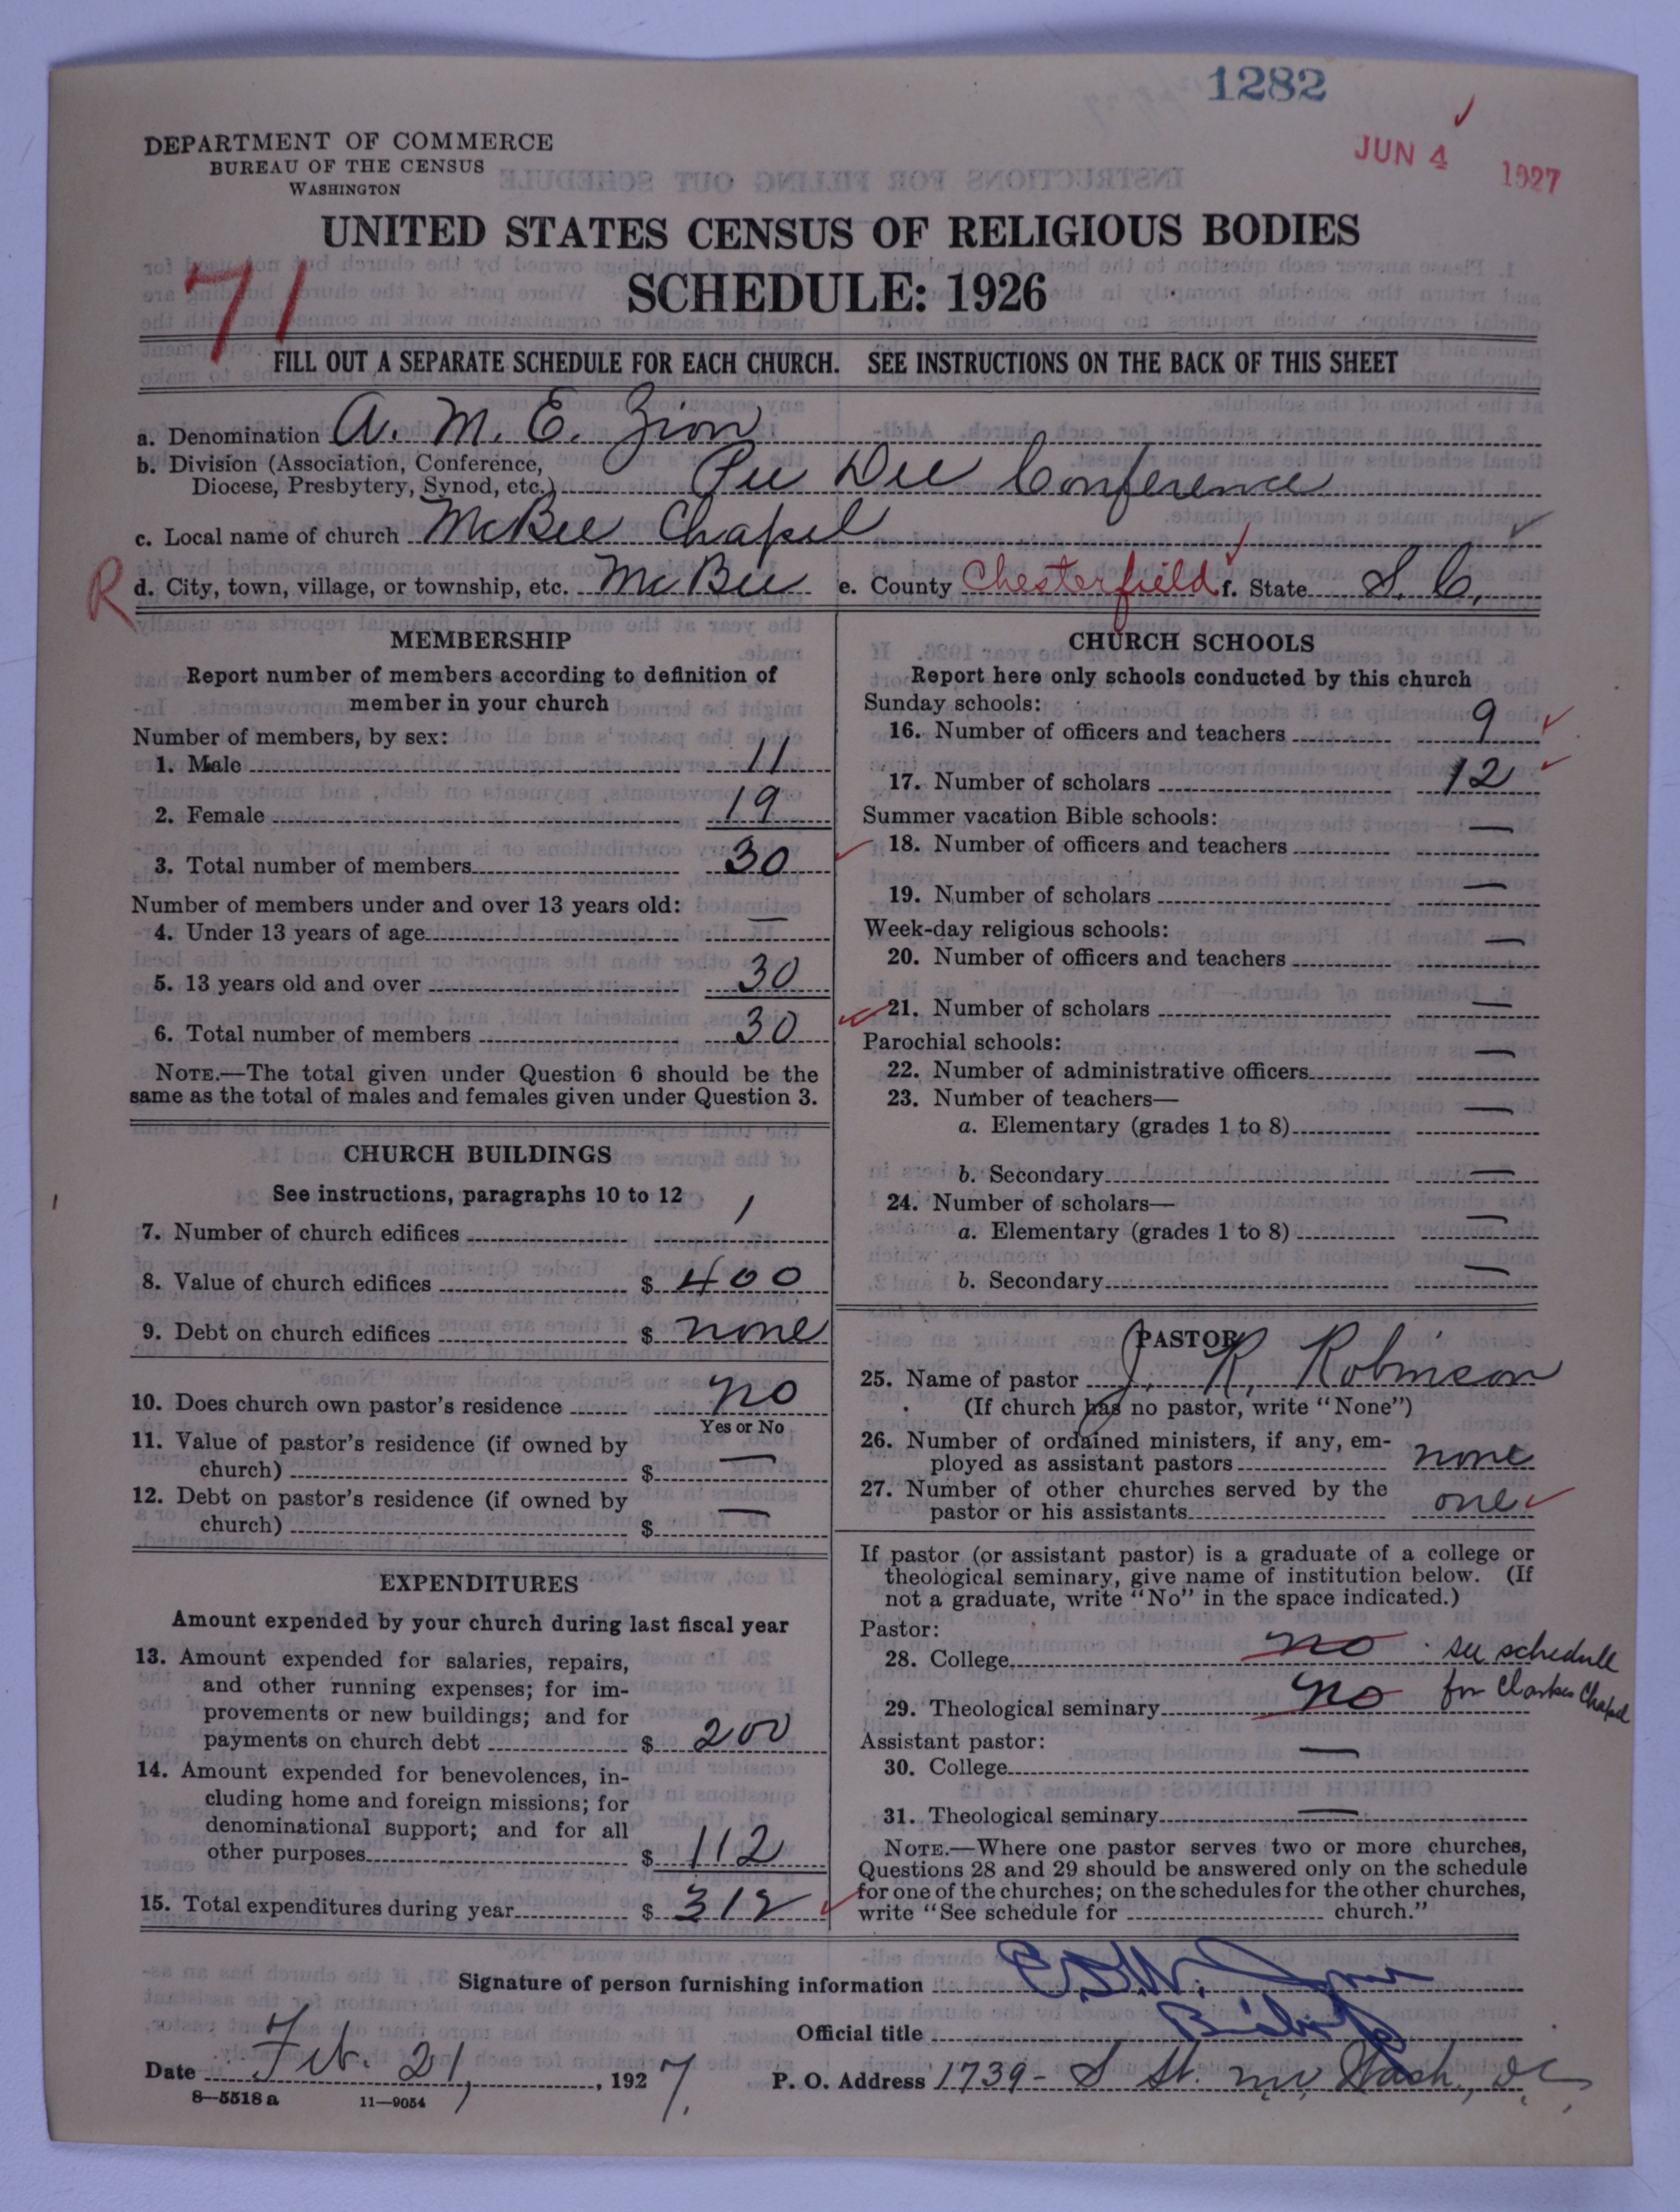 1282
JUN 4 1927
DEPARTMENT OF COMMERCE
BUREAU OF THE CENSUS
WASHINGTON
UNITED STATES CENSUS OF RELIGIOUS BODIES
SCHEDULE: 1926
71
FILL OUT A SEPARATE SCHEDULE FOR EACH CHURCH. SEE INSTRUCTIONS ON THE BACK OF THIS SHEET
a. Denomination A. M. E. Zion
b. Division (Association, Conference,
Diocese, Presbytery, Synod, etc.) Pee Dee Conference
c. Local name of church McBee Chapel
R d. City, town, village, or township, etc. McBee e. County Chesterfield f. State S. C.
MEMBERSHIP
Report number of members according to definition of
member in your church
Number of members, by sex:
1. Male 11
2. Female 19
3. Total number of members 30
Number of members under and over 13 years old:
4. Under 13 years of age —
5. 13 years old and over 30
6. Total number of members 30
NOTE.—The total given under Question 6 should be the
same as the total of males and females given under Question 3.
CHURCH BUILDINGS
See instructions, paragraphs 10 to 12
7. Number of church edifices 1
8. Value of church edifices $ 400
9. Debt on church edifices $ none
10. Does church own pastor's residence no
Yes or No
11. Value of pastor's residence (if owned by
church) $ —
12. Debt on pastor's residence (if owned by
church) $ —
EXPENDITURES
Amount expended by your church during last fiscal year
13. Amount expended for salaries, repairs,
and other running expenses; for im-
provements or new buildings; and for
payments on church debt $ 200
14. Amount expended for benevolences, in-
cluding home and foreign missions; for
denominational support; and for all
other purposes $ 112
15. Total expenditures during year $ 312
CHURCH SCHOOLS
Report here only schools conducted by this church
Sunday schools:
16. Number of officers and teachers 9
17. Number of scholars 12
Summer vacation Bible schools:
18. Number of officers and teachers —
19. Number of scholars —
Week-day religious schools:
20. Number of officers and teachers —
21. Number of scholars —
Parochial schools:
22. Number of administrative officers —
23. Number of teachers—
a. Elementary (grades 1 to 8) —
b. Secondary —
24. Number of scholars—
a. Elementary (grades 1 to 8) —
b. Secondary —
PASTOR
25. Name of pastor J. R. Robinson
(If church has no pastor, write "None")
26. Number of ordained ministers, if any, em-
ployed as assistant pastors none
27. Number of other churches served by the
pastor or his assistants one
If pastor (or assistant pastor) is a graduate of a college or
theological seminary, give name of institution below. (If
not a graduate, write "No" in the space indicated.)
Pastor:
28. College no see schedule
29. Theological seminary no for Clarkes Chapel
Assistant pastor:
30. College —
31. Theological seminary —
NOTE.—Where one pastor serves two or more churches,
Questions 28 and 29 should be answered only on the schedule
for one of the churches; on the schedules for the other churches,
write "See schedule for church."
Signature of person furnishing information
Official title Bishop
Date Feb. 21, 1927. P. O. Address 1739- S St. nw Wash., D.C.
8—5518 a 11—9054